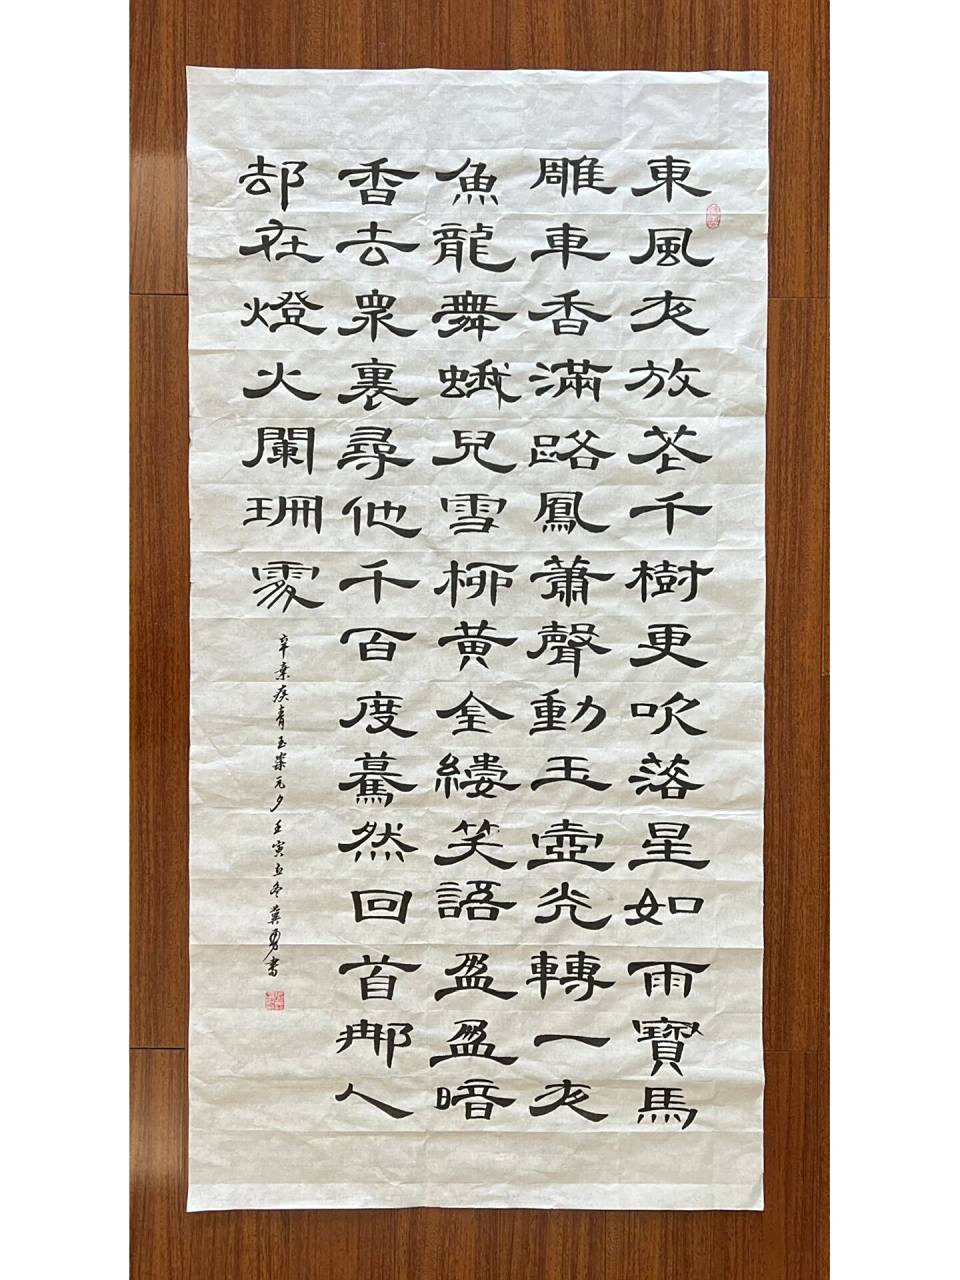 東風夜放花千樹更吹落星如雨寶馬
雕車香滿路鳳蕭聲動玉壺光轉一夜
魚龍舞蛾兒雪柳黃金縷笑語盈盈暗
香去眾裏尋他千百度驀然回首那人
却在燈火闌珊處
辛棄疾青玉案元夕壬寅立冬冀勇書